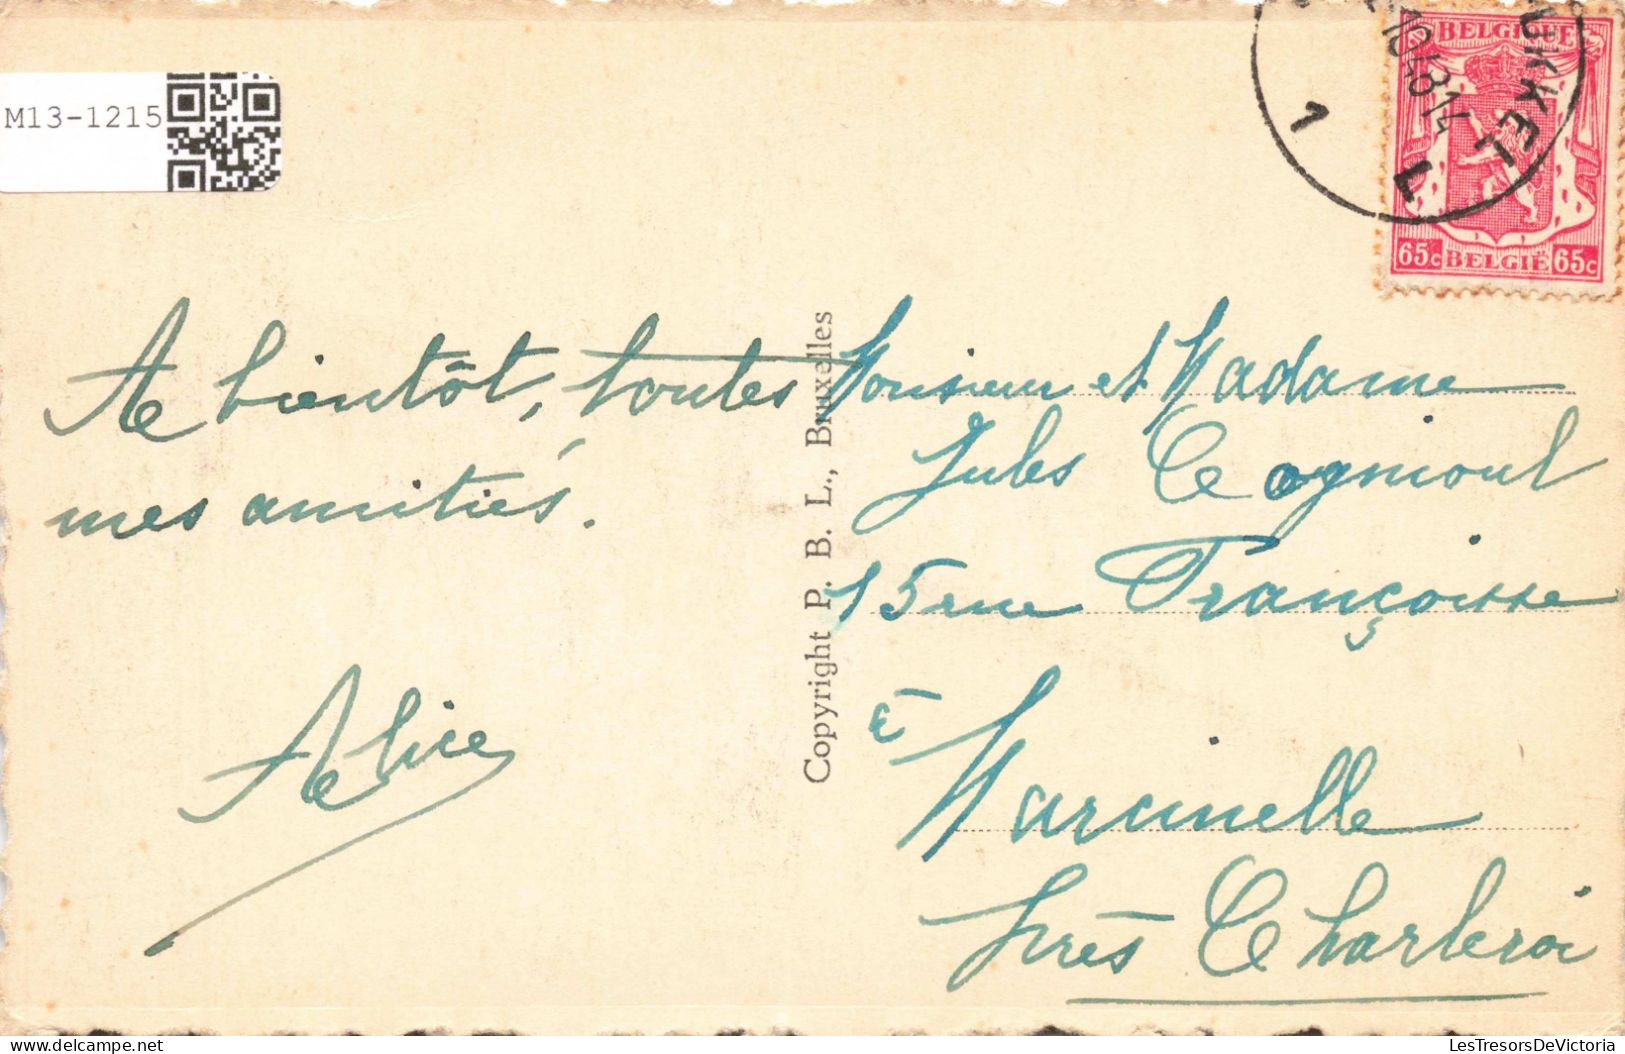 M13-1215
UKKEL
1
1048 14
BELGIQUE
65c BELGIË 65c
A bientôt, toutes
mes amitiés.
Alice
Copyright P. B. L., Bruxelles
Monsieur et Madame
Jules Cognioul
15 rue Françoisse
à
Marcinelle
près Charleroi
LesTresorsDeVictoria
delcampe.net